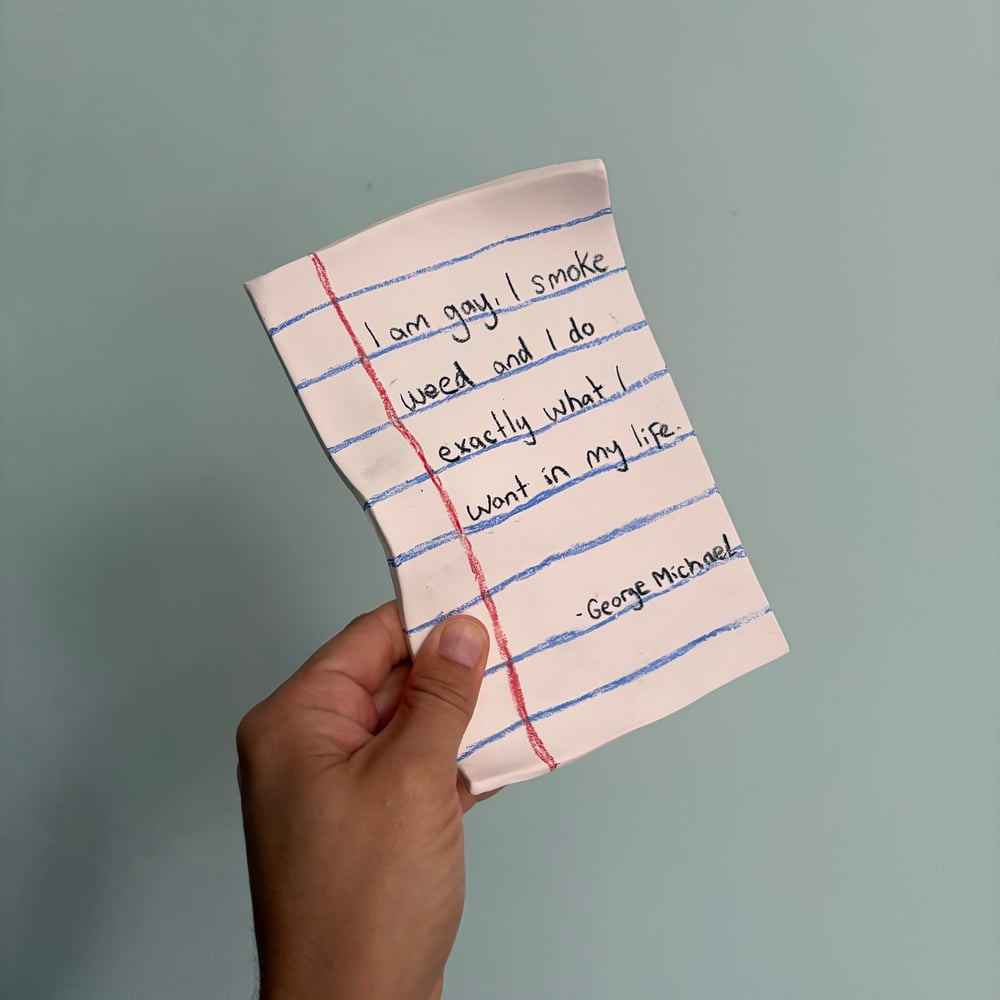 I am gay, I smoke
weed and I do
exactly what I
want in my life.
-George Michael